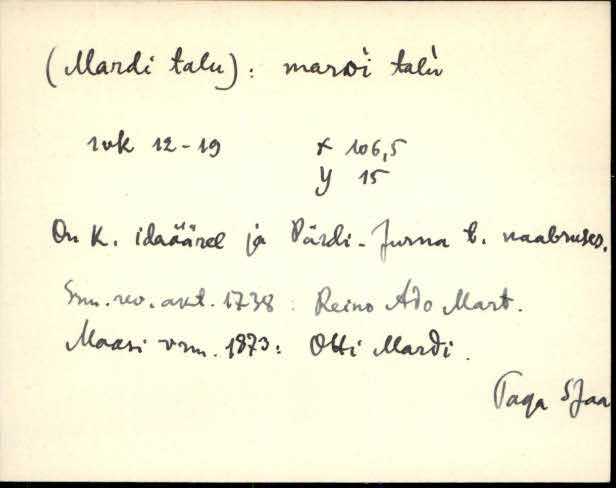 (Mardi talu): marDi talu
1vk 12-19 x 106,5
y 15
On K. idaäärel ja Pärdi-Jurna t. naabruses.
Snn. rev. akt. 1738: Reino Ado Mart.
Maasi vrn. 1873: Otti Mardi.
Taga SJaa